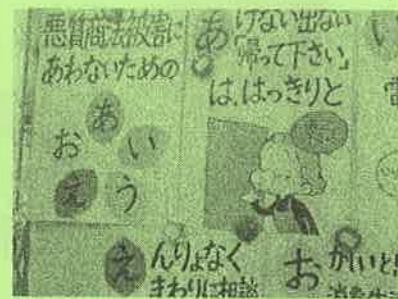 悪質商法被害に
あわないための
あ
お い
え う
あ けない出ない
「帰って下さい」
は、はっきりと
い
え んりょなく
まわりに相談
お かしいと!